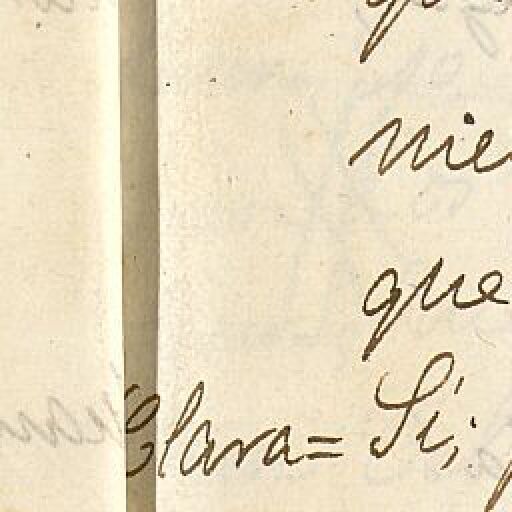 nie
que
Clara= Sí;